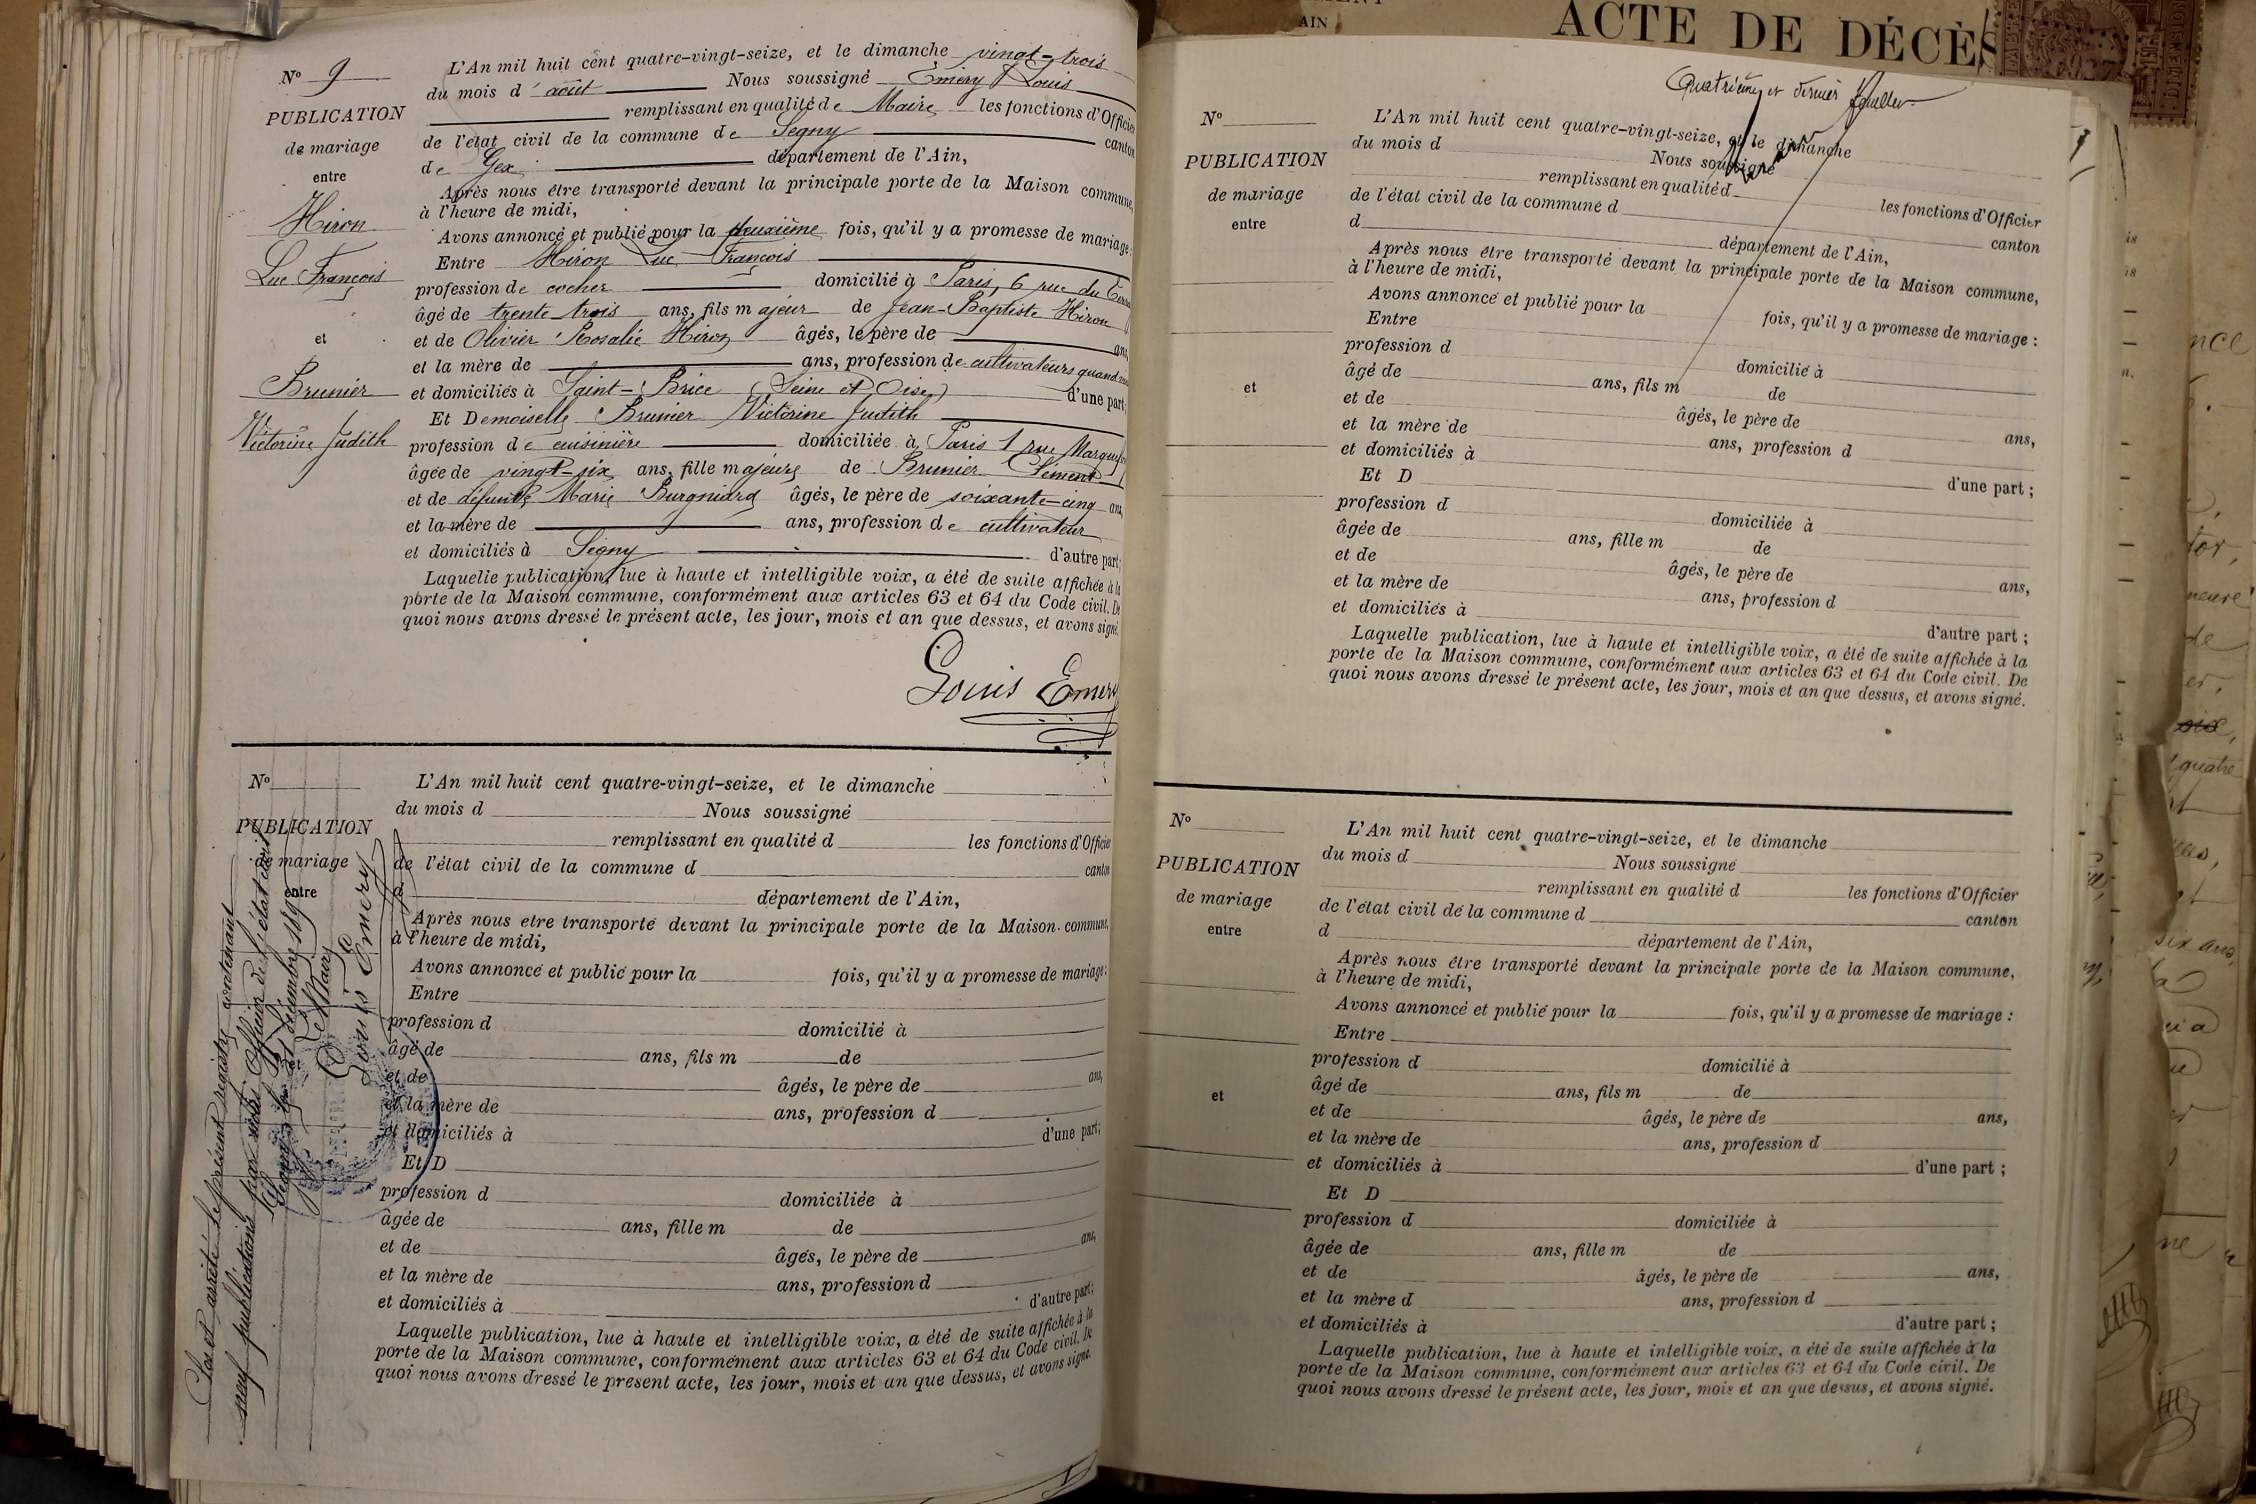 N° 9
PUBLICATION
de mariage
entre
Hiron
Luc François
et
Brunier
Victorine Judith
L'An mil huit cent quatre-vingt-seize, et le dimanche vingt-trois
du mois d'août Nous soussigné Emery Louis
remplissant en qualité de Maire les fonctions d'Officier
de l'état civil de la commune de Segny canton
de Gex département de l'Ain,
Après nous être transporté devant la principale porte de la Maison commune,
à l'heure de midi,
Avons annoncé et publié pour la deuxième fois, qu'il y a promesse de mariage:
Entre Hiron Luc François
profession de cocher domicilié à Paris, 6 rue du
âgé de trente trois ans, fils majeur de Jean-Baptiste Hiron
et de Olivier Rosalie Hiron âgés, le père de ans,
et la mère de ans, profession de cultivateurs quand
et domiciliés à Saint-Brice (Seine et Oise) d'une part;
Et Demoiselle Brunier Victorine Judith
profession de cuisinière domiciliée à Paris 1 rue
âgée de vingt-six ans, fille majeure de Brunier Clément
et de défunte Marie Burgniard âgés, le père de soixante-cinq ans,
et la mère de ans, profession de cultivateur
et domiciliés à Segny d'autre part;
Laquelle publication, lue à haute et intelligible voix, a été de suite affichée à la
porte de la Maison commune, conformément aux articles 63 et 64 du Code civil. De
quoi nous avons dressé le présent acte, les jour, mois et an que dessus, et avons signé.
Louis Emery
N°
PUBLICATION
de mariage
entre
et
L'An mil huit cent quatre-vingt-seize, et le dimanche
du mois d Nous soussigné
remplissant en qualité d les fonctions d'Officier
de l'état civil de la commune d canton
d département de l'Ain,
Après nous être transporté devant la principale porte de la Maison commune,
à l'heure de midi,
Avons annoncé et publié pour la fois, qu'il y a promesse de mariage:
Entre
profession d domicilié à
âgé de ans, fils m de
et de âgés, le père de ans,
et la mère de ans, profession d
et domiciliés à d'une part;
Et D
profession d domiciliée à
âgée de ans, fille m de
et de âgés, le père de ans,
et la mère de ans, profession d
et domiciliés à d'autre part;
Laquelle publication, lue à haute et intelligible voix, a été de suite affichée à la
porte de la Maison commune, conformément aux articles 63 et 64 du Code civil. De
quoi nous avons dressé le présent acte, les jour, mois et an que dessus, et avons signé.
Clos et arrêté le présent registre contenant
neuf publications par nous Officier de l'état civil
Le Maire
Louis Emery
ACTE DE DÉCÈS
AIN
Quatrième et dernier feuillet
N°
PUBLICATION
de mariage
entre
et
L'An mil huit cent quatre-vingt-seize, et le dimanche
du mois d Nous soussigné
remplissant en qualité d les fonctions d'Officier
de l'état civil de la commune d canton
d département de l'Ain,
Après nous être transporté devant la principale porte de la Maison commune,
à l'heure de midi,
Avons annoncé et publié pour la fois, qu'il y a promesse de mariage :
Entre
profession d domicilié à
âgé de ans, fils m de
et de âgés, le père de ans,
et la mère de ans, profession d
et domiciliés à d'une part ;
Et D
profession d domiciliée à
âgée de ans, fille m de
et de âgés, le père de ans,
et la mère de ans, profession d
et domiciliés à d'autre part ;
Laquelle publication, lue à haute et intelligible voix, a été de suite affichée à la
porte de la Maison commune, conformément aux articles 63 et 64 du Code civil. De
quoi nous avons dressé le présent acte, les jour, mois et an que dessus, et avons signé.
N°
PUBLICATION
de mariage
entre
et
L'An mil huit cent quatre-vingt-seize, et le dimanche
du mois d Nous soussigné
remplissant en qualité d les fonctions d'Officier
de l'état civil de la commune d canton
d département de l'Ain,
Après nous être transporté devant la principale porte de la Maison commune,
à l'heure de midi,
Avons annoncé et publié pour la fois, qu'il y a promesse de mariage :
Entre
profession d domicilié à
âgé de ans, fils m de
et de âgés, le père de ans,
et la mère de ans, profession d
et domiciliés à d'une part ;
Et D
profession d domiciliée à
âgée de ans, fille m de
et de âgés, le père de ans,
et la mère d ans, profession d
et domiciliés à d'autre part ;
Laquelle publication, lue à haute et intelligible voix, a été de suite affichée à la
porte de la Maison commune, conformément aux articles 63 et 64 du Code civil. De
quoi nous avons dressé le présent acte, les jour, mois et an que dessus, et avons signé.